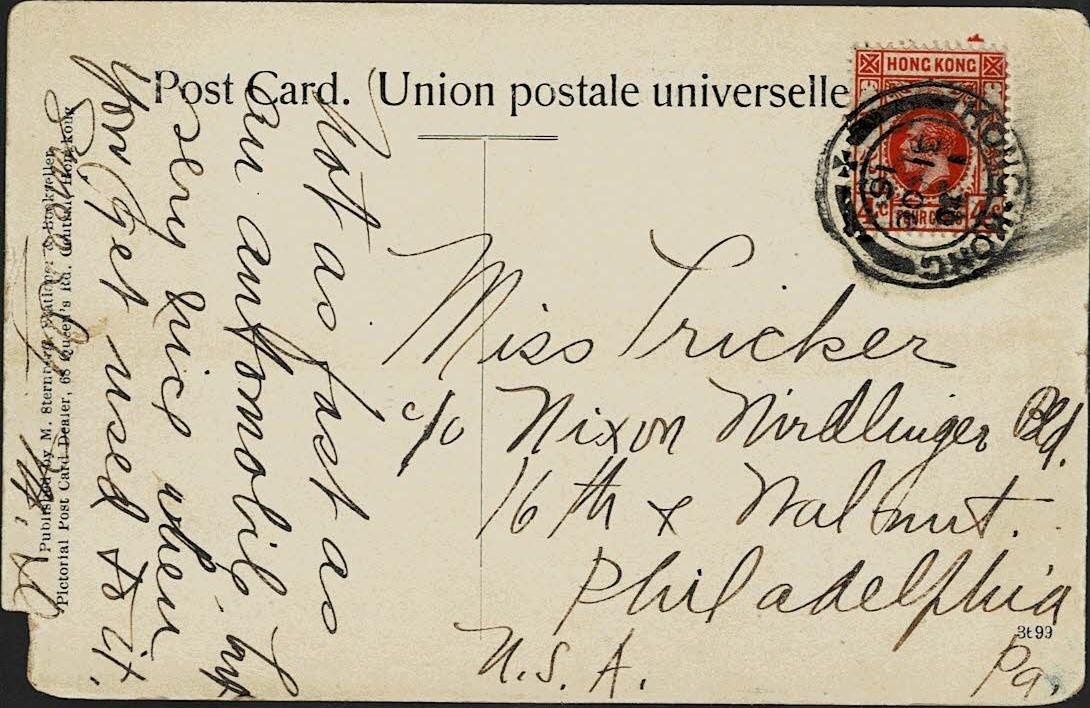 Post Card. Union postale universelle
HONG KONG
FOUR CENTS
HONG-KONG
Not as fast as
an automobile but
very nice when
you get used to it.
Published by M. Sternberg, Stationer & Bookseller,
Pictorial Post Card Dealer, 66 Queen's Rd. Central, Hongkong
Miss Tricker
c/o Nixon Nirdlinger Bld.
16th & Walnut.
Philadelphia
Pa.
U.S.A.
3699